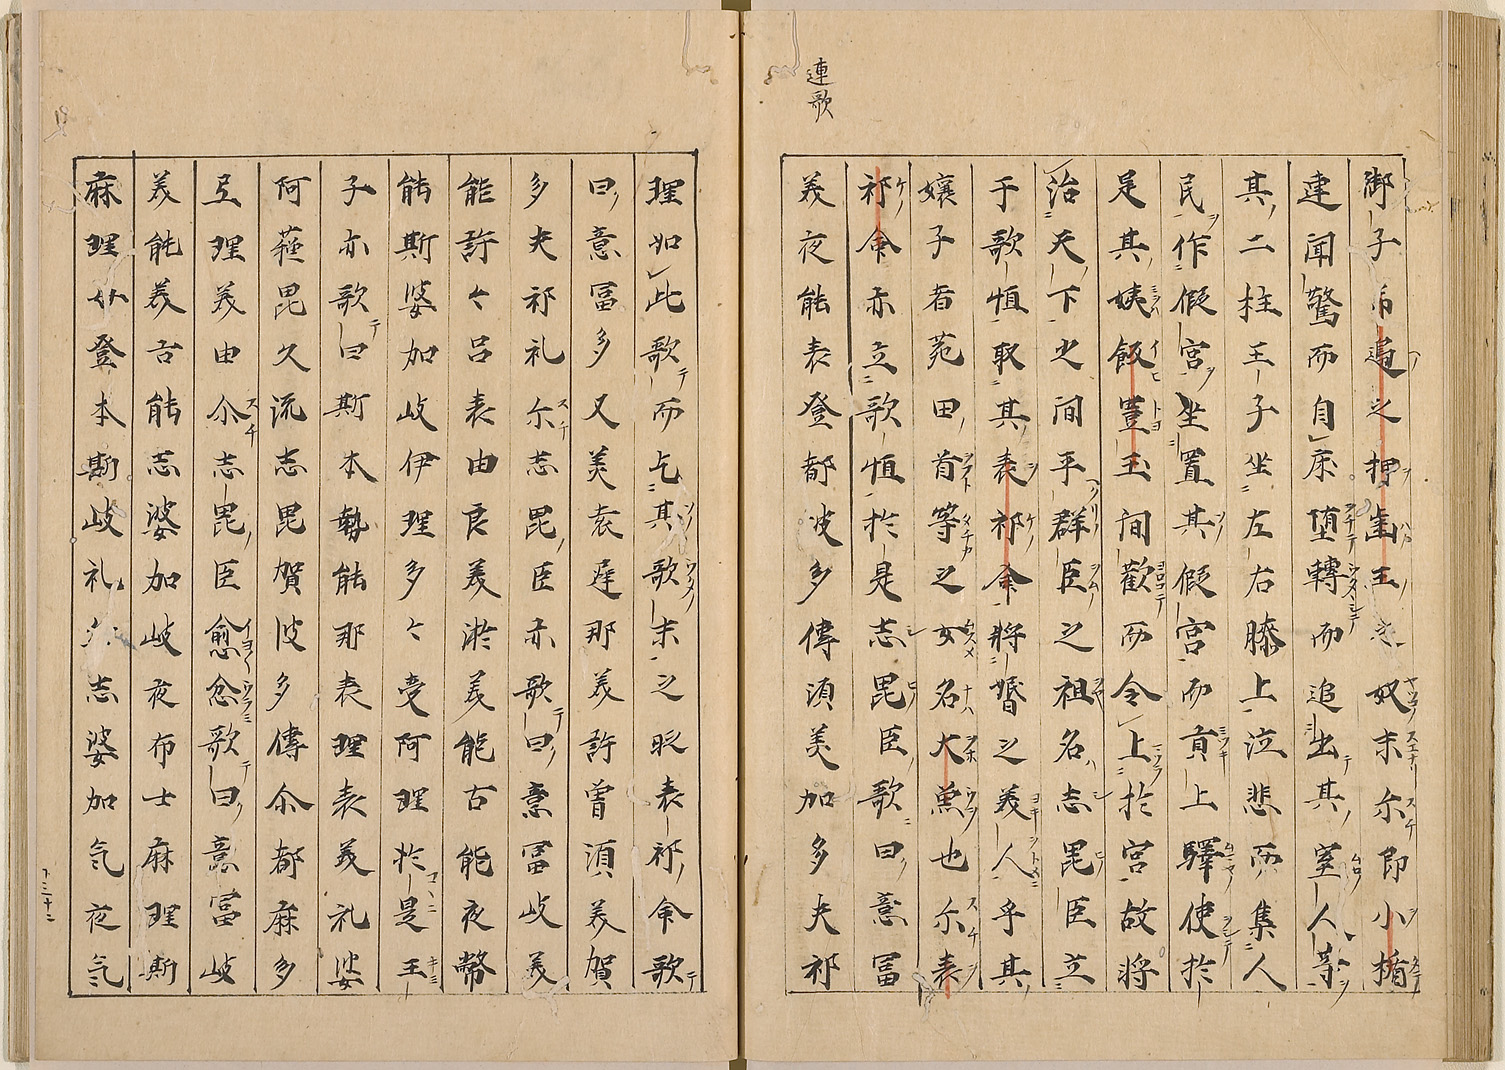 連歌
御子市邊之押歯王之奴末尓即小楯
連聞驚而自床堕轉而追出其室人等
其二柱王子坐左右膝上泣悲而集人
民作假宮坐置其假宮而貢上驛使於
是其姨飯豊王間歡而令上於宮故将
治天下之間平群臣之祖名志毘臣立
于歌恒取其表祁命将婚之美人乎其
嬢子者菟田首等之女名大魚也尓表
祁命亦立歌恒於是志毘臣歌曰意冨
義夜能表登都波多傳湏美加多夫祁
理如此歌而乞其歌末之时表祁命歌
曰意冨多又美袁遅那美許曽湏美賀
多夫祁礼尓志毘臣亦歌曰意冨岐美
能許々呂表由良美淤美能古能夜幣
能斯婆加岐伊理多々受阿理於是王
子亦歌曰斯本勢能那表理表美礼婆
阿蘓毘久流志毘賀波多傳尒都麻多
弖理美由尒志毘臣愈忿歌曰意冨岐
美能美古能志婆加岐夜布士麻理斯
麻理母登本斯岐礼志婆加气夜气